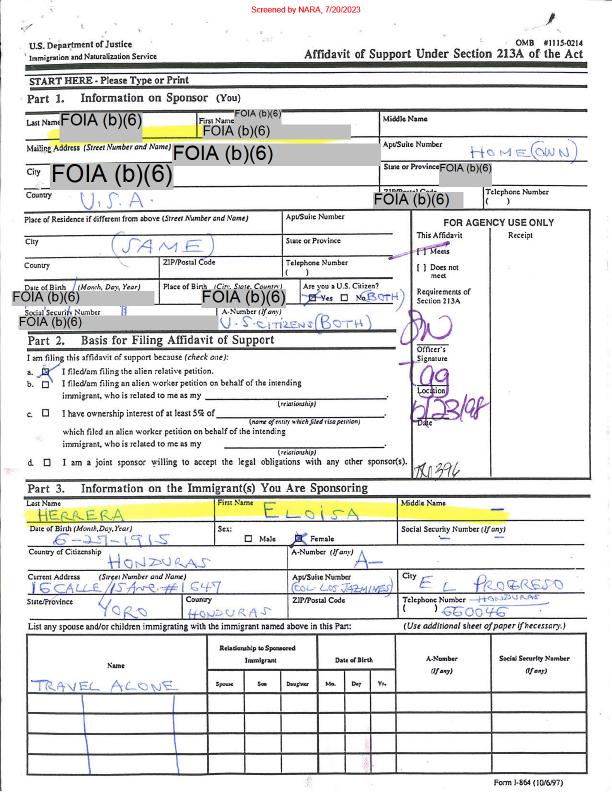 Screened by NARA, 7/20/2023
U.S. Department of Justice
Immigration and Naturalization Service
OMB #1115-0214
Affidavit of Support Under Section 213A of the Act
START HERE - Please Type or Print
Part 1. Information on Sponsor (You)
Last Name FOIA (b)(6) First Name FOIA (b)(6) FOIA (b)(6) Middle Name
Mailing Address (Street Number and Name) FOIA (b)(6) Apt/Suite Number HOME (OWN)
City FOIA (b)(6) State or Province FOIA (b)(6)
Country U.S.A. ZIP/Postal Code FOIA (b)(6) Telephone Number ( )
Place of Residence if different from above (Street Number and Name) Apt/Suite Number
City (SAME) State or Province
Country ZIP/Postal Code Telephone Number ( )
Date of Birth (Month, Day, Year) FOIA (b)(6) Place of Birth (City, State, Country) FOIA (b)(6) Are you a U.S. Citizen? Yes No (BOTH)
Social Security Number FOIA (b)(6) A-Number (If any) U.S. CITIZENS (BOTH)
FOR AGENCY USE ONLY
This Affidavit Receipt
[ ] Meets
[ ] Does not meet
Requirements of Section 213A
Officer's Signature
Location
6/23/98
Date
Part 2. Basis for Filing Affidavit of Support
I am filing this affidavit of support because (check one):
a. I filed/am filing the alien relative petition.
b. I filed/am filing an alien worker petition on behalf of the intending
immigrant, who is related to me as my
(relationship)
c. I have ownership interest of at least 5% of
(name of entity which filed visa petition)
which filed an alien worker petition on behalf of the intending
immigrant, who is related to me as my
(relationship)
d. I am a joint sponsor willing to accept the legal obligations with any other sponsor(s).
Part 3. Information on the Immigrant(s) You Are Sponsoring
Last Name HERRERA First Name ELOISA Middle Name —
Date of Birth (Month,Day,Year) 6-27-1915 Sex: Male Female Social Security Number (If any) — —
Country of Citizenship HONDURAS A-Number (If any) A-
Current Address (Street Number and Name) 16 CALLE/15 Ave. #1647 Apt/Suite Number (COL-LOS JAZMINES) City EL PROGRESO
State/Province YORO Country HONDURAS ZIP/Postal Code Telephone Number HONDURAS ( ) 660046
List any spouse and/or children immigrating with the immigrant named above in this Part: (Use additional sheet of paper if necessary.)
Name Relationship to Sponsored Immigrant Date of Birth A-Number (If any) Social Security Number (If any)
Spouse Son Daughter Mo. Day Yr.
TRAVEL ALONE
Form I-864 (10/6/97)